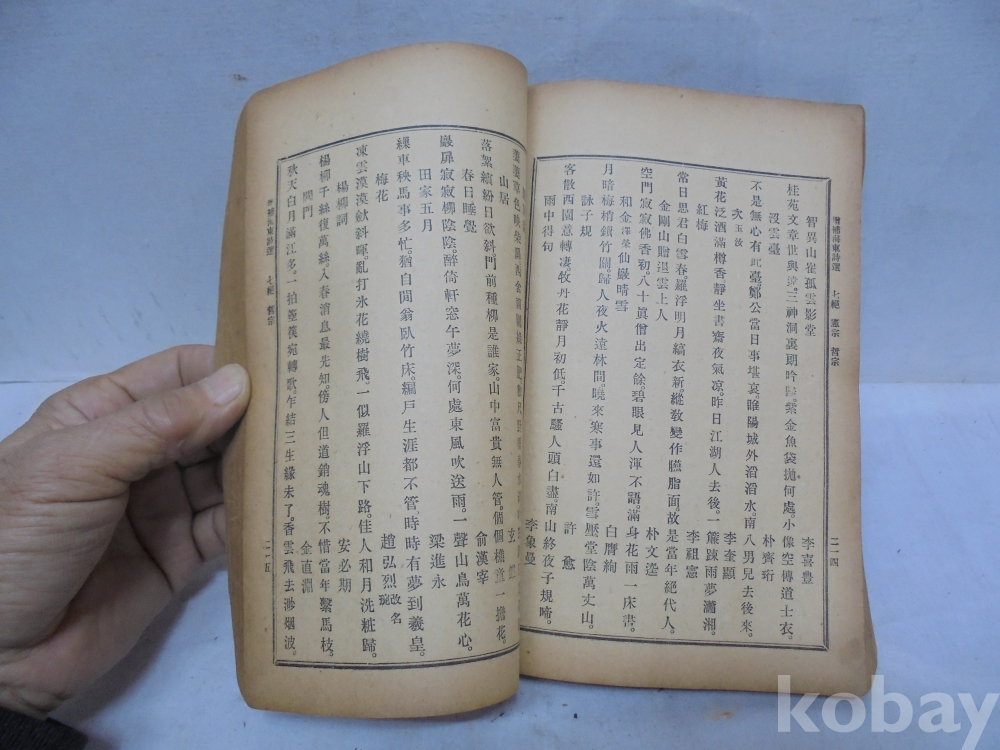 增補海東詩選 七絕 憲宗 哲宗 二一四
智異山崔孤雲影堂 李喜豊
桂苑文章世與違。三神洞裏朗吟歸。紫金魚袋拋何處。小像空傳道士衣。
沒雲臺 朴齊珩
不是無心有此臺。鄭公當日事堪哀。睢陽城外滔滔水。南八男兒去後來。
次玉 李奎顯
黃花泛酒滿樽香。靜坐書齋夜氣凉。昨日江湖人去後。一簾踈雨夢瀟湘。
紅梅 李祖憲
當日思君白雪春。羅浮明月縞衣新。縱敎變作臙脂面。故是當年絕代人。
金剛山贈還雲上人 朴文逵
空門寂寂佛香初。八十眞僧出定餘。碧眼見人渾不語。滿身花雨一床書。
和金澤榮仙巖晴雪 白膺絢
月暗梅梢鎖竹關。歸人夜火遠林間。曉來寒事還如許。雪壓堂陰萬丈山。
詠子規 許愈
客散西園意轉凄。牧丹花靜月初低。千古騷人頭白盡。南山終夜子規啼。
雨中得句 李象曼
山居
落絮繽紛日欲斜。門前種柳是誰家。山中富貴無人管。個個樵童一擔花。
春日睡覺 俞漢宰
巖扉寂寂柳陰陰。醉倚軒窓午夢深。何處東風吹送雨。一聲山鳥萬花心。
田家五月 梁進永
繅車秧馬事多忙。猶自閒翁臥竹床。編戶生涯都不管。時時有夢到羲皇。
梅花 趙弘烈 改名琬
凍雲漠漠歛斜暉。亂打氷花繞樹飛。一似羅浮山下路。佳人和月洗粧歸。
楊柳詞 安必期
楊柳千絲復萬絲。入春消息最先知。傍人但道銷魂樹。不惜當年繫馬枝。
閉門 金直淵
秋天白月滿江多。一拍箜篌宛轉歌。乍結三生緣未了。香雲飛去渺烟波。
增補海東詩選 七絕 哲宗 二一五
kobay